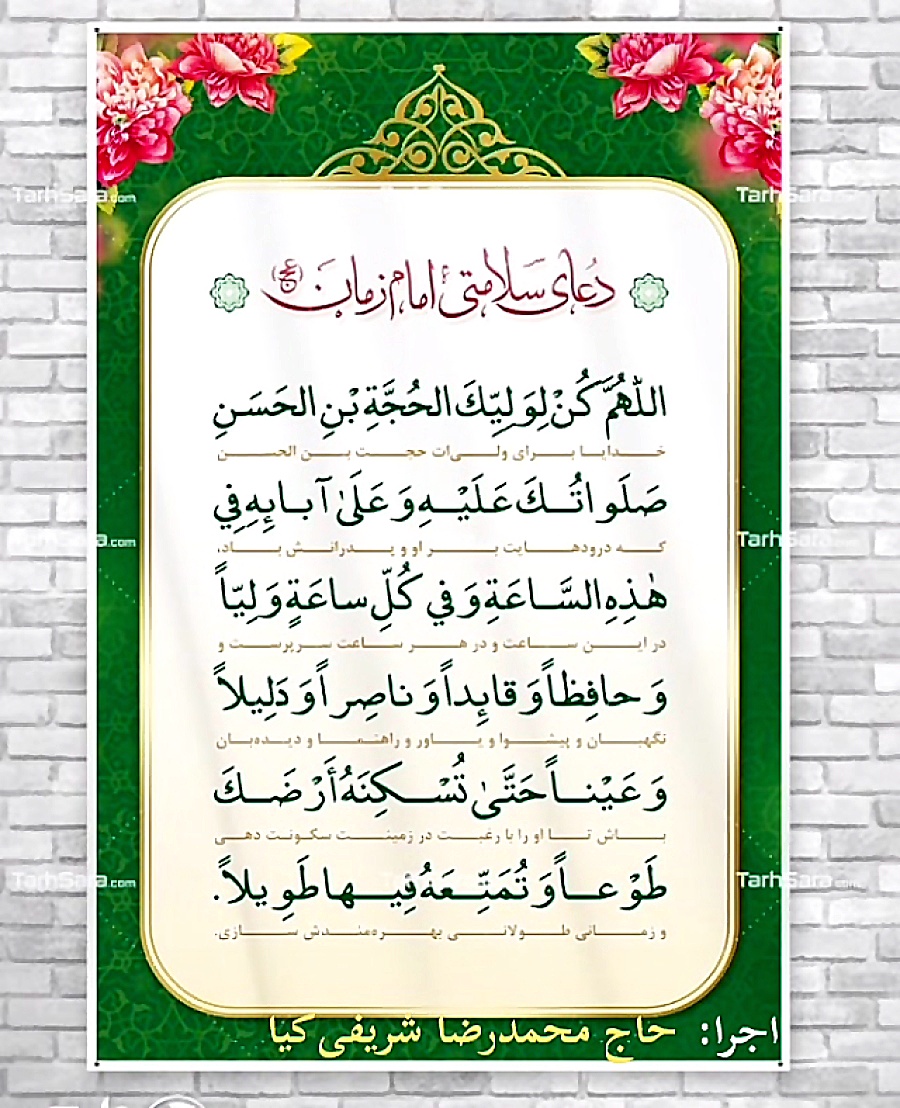 دعای سلامتی امام زمان (عج)
اللّٰهُمَّ كُنْ لِوَلِيِّكَ الحُجَّةِ بْنِ الحَسَنِ
خدایا برای ولی‌ات حجت بن الحسن
صَلَواتُكَ عَلَيْهِ وَ عَلَىٰ آبائِهِ فِي
که درودهایت بر او و پدرانش باد،
هٰذِهِ السَّاعَةِ وَ فِي كُلِّ ساعَةٍ وَلِيّاً
در این ساعت و در هر ساعت سرپرست و
وَ حافِظاً وَ قائِداً وَ ناصِراً وَ دَلِيلاً
نگهبان و پیشوا و یاور و راهنما و دیده‌بان
وَ عَيْناً حَتَّىٰ تُسْكِنَهُ أَرْضَكَ
باش تا او را با رغبت در زمینت سکونت دهی
طَوْعاً وَ تُمَتِّعَهُ فِيها طَوِيلاً.
و زمانی طولانی بهره‌مندش سازی.
اجرا: حاج محمدرضا شریفی کیا
TarhSara.com
TarhSara.com
TarhSara.com
TarhSara.com
TarhSara.com
TarhSara.com